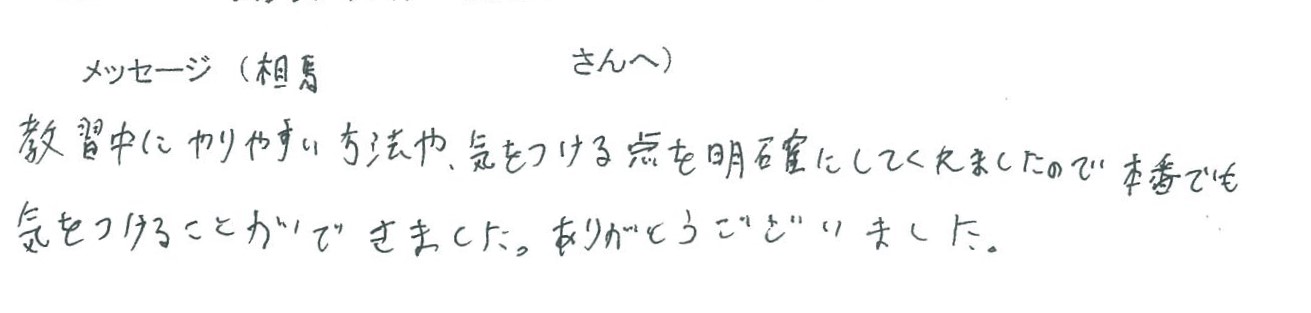 メッセージ（相馬 さんへ）
教習中にやりやすい方法や、気をつける点を明確にしてくれましたので本番でも
気をつけることができました。ありがとうございました。